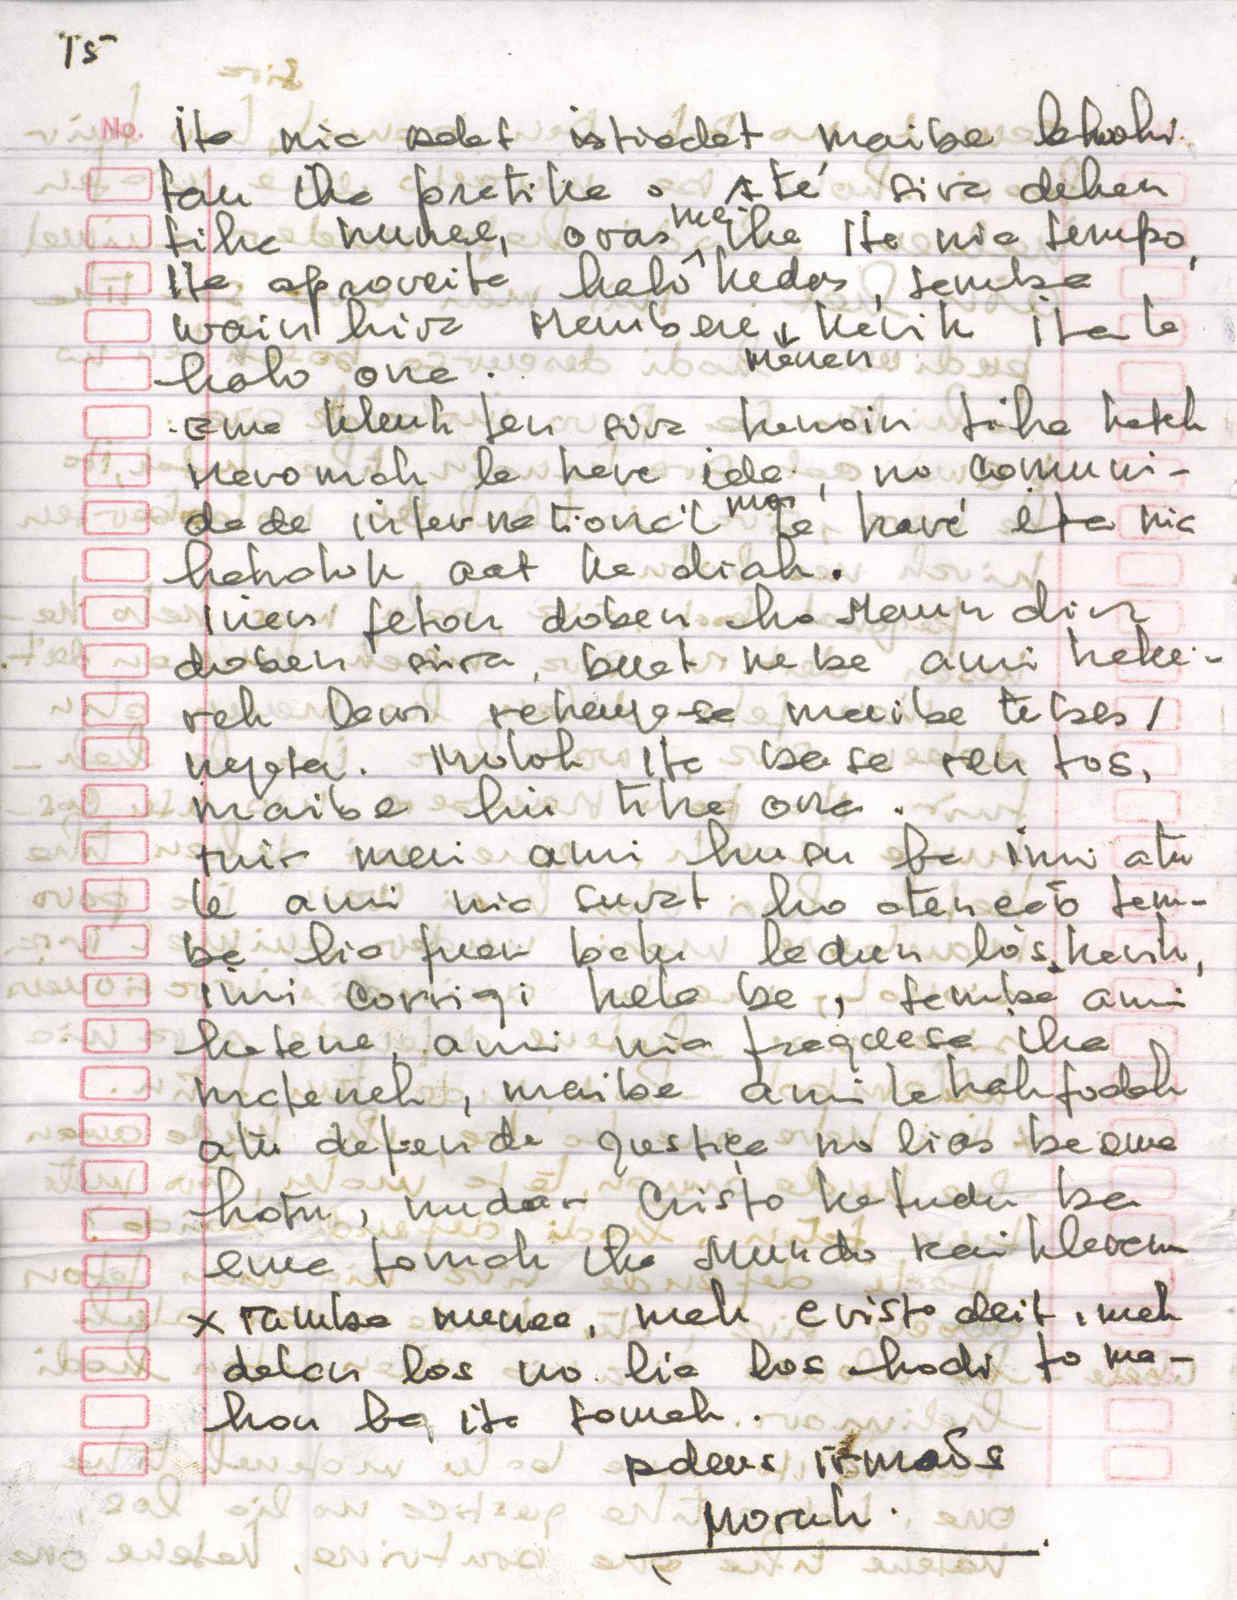 15
No.
Ita nia adat istiadat maibe la kohi
tau iha pratika. Até sira dehan
tiha nunee, oras mai iha ita nia tempo,
ita aproveita halo kedas, tamba
wainhira Membere manan karik ita la
halo ona.
ema kluuk ten sira kanoin tiha katak
Maromak la hare ida, no comuni-
dade international mos la haré ita nia
hahalok aat ka diak.
inan feton doben ho Maun alin
doben sira, buat nebe ami hake-
rek laus rahanesa maibe tebes/
nyata. Molok ita base ran tos,
maibe hin tiha ona.
tuir mai ami husu ba imi atu
le ami nia surat ho atencão tam-
ba lia fuan balu ladun lós karik,
imi corrigi kela be, tamba ami
hatene, ami nia fraquesa iha
mateneh, maibe ami la hakfodak
atu defende justiça no lias ba ema
hotu, nudar Cristo hatudu ba
ema tomak iha Mundo rai klaran
x tamba nunee, mak Cristo deit, mak
dalan los no lia los hodi to ma-
hon ba ita tomak.
adeus irmaõs
Moruk.